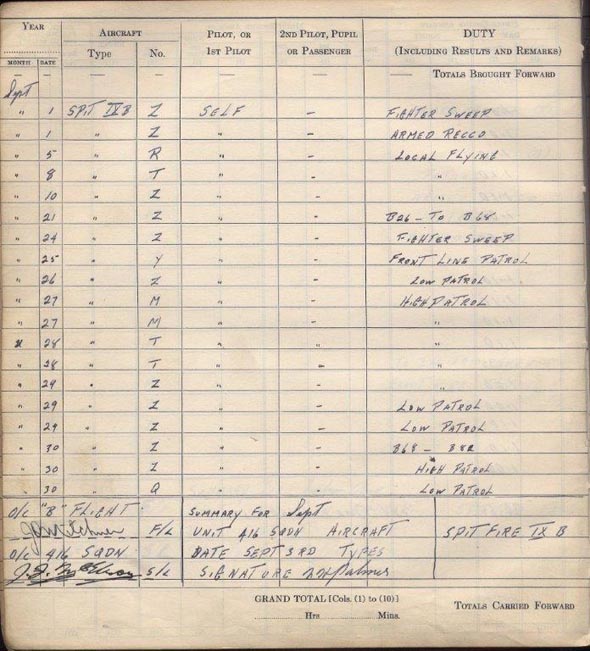 YEAR AIRCRAFT PILOT, OR 2ND PILOT, PUPIL DUTY
MONTH DATE Type No. 1ST PILOT OR PASSENGER (INCLUDING RESULTS AND REMARKS)
— — — — — — TOTALS BROUGHT FORWARD
Sept
" 1 SPIT IXB Z SELF - FIGHTER SWEEP
" 1 " Z " - ARMED RECCO
" 5 " R " - LOCAL FLYING
" 8 " T " - "
" 10 " Z " - "
" 21 " Z " " B26 - TO B68
" 24 " Z " - FIGHTER SWEEP
" 25 " Y " " FRONT LINE PATROL
" 26 " Z " - LOW PATROL
" 27 " M " - HIGH PATROL
" 27 " M " - "
" 28 " T " " "
" 28 " T " " "
" 29 " Z " - "
" 29 " Z " - LOW PATROL
" 29 " Z " - LOW PATROL
" 30 " Z " - B68 - B82
" 30 " Z " - HIGH PATROL
" 30 " Q " - LOW PATROL
O/C "B" FLIGHT SUMMARY FOR Sept
F/L UNIT 416 SQDN AIRCRAFT SPITFIRE IX B
O/C 416 SQDN DATE SEPT 3RD TYPES
S/L SIGNATURE Palmer
GRAND TOTAL [Cols. (1) to (10)] TOTALS CARRIED FORWARD
Hrs. Mins.